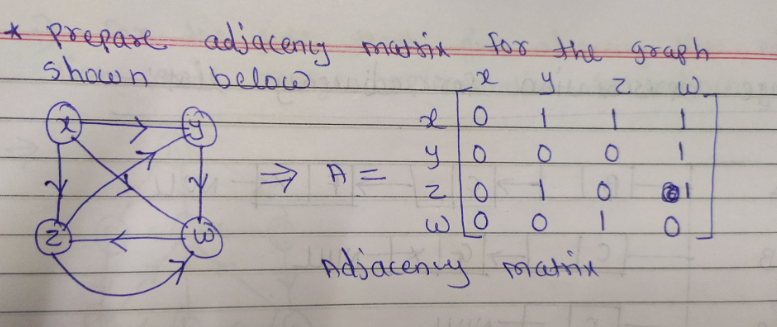 * prepare adjaceny matrix for the graph
shown below
x y z w
x y ⇒ A = x 0 1 1 1
y 0 0 0 1
z 0 1 0 1
z w w 0 0 1 0
Adjacency matrix